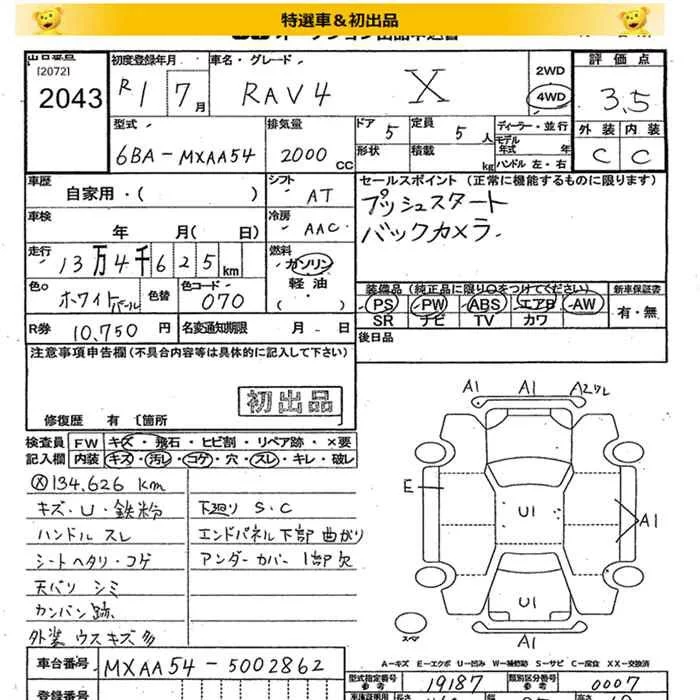 特選車＆初出品
出品番号
[2072]
2043
初度登録年月
R1 7月
車名・グレード
RAV4 X
2WD
4WD
評価点
3.5
外装 内装
C C
型式
6BA-MXAA54
排気量
2000 CC
ドア 5
形状
定員 5 人
積載 kg
ディーラー・並行
モデル年式 年
ハンドル 左・右
車歴
自家用・( )
シフト
AT
車検
年 月( 日)
冷房
AAC
走行
13万4千625km
燃料
ガソリン
軽油
( )
色
ホワイトパール
色替
色コード
070
R券 10,750 円
名変通知期限 月 日
セールスポイント（正常に機能するものに限ります）
プッシュスタート
バックカメラ
装備品（純正品に限り○をつけてください）
PS PW ABS エアB AW
SR ナビ TV カワ
新車保証書
有・無
後日品
注意事項申告欄(不具合内容等は具体的に記入して下さい)
初出品
修復歴 有 〔箇所
検査員 FW キズ・飛石・ヒビ割・リペア跡・×要
記入欄 内装 キズ・汚レ・コゲ・穴・スレ・キレ・破レ
ⓧ134,626 km
キズ・U・鉄粉
ハンドル スレ
シートヘタリ・コゲ
天バリ シミ
カンバン跡
外装 ウスキズ多
下廻り S.C
エンドパネル下部 曲がり
アンダーカバー 1部欠
A1 A1 A2ワレ
E
U1
A1
U1
A1
スペア
A-キズ E-エクボ U-凹み W-補修跡 S-サビ C-腐食 XX-交換済
車台番号 MXAA54-5002862
登録番号
型式指定番号
参考
19187
類別区分番号
参考
0007